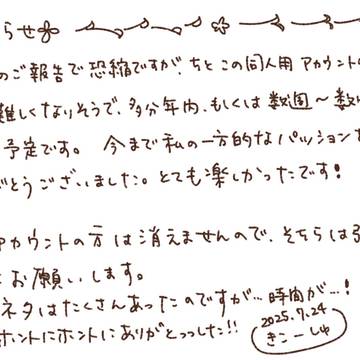 らせ
のご報告で恐縮ですが、ちと この同人用 アカウントの
難しくなりそうで、多分年内、もしくは数週〜数
予定です。 今まで私の一方的なパッションを
がとうございました。とても楽しかったです!
アカウントの方は消えませんので、そちらは引
お願いします。
ネタはたくさんあったのですが…時間が…!
ホントにホントにありがとっっした!!
2025.7.24
きこーしゅ